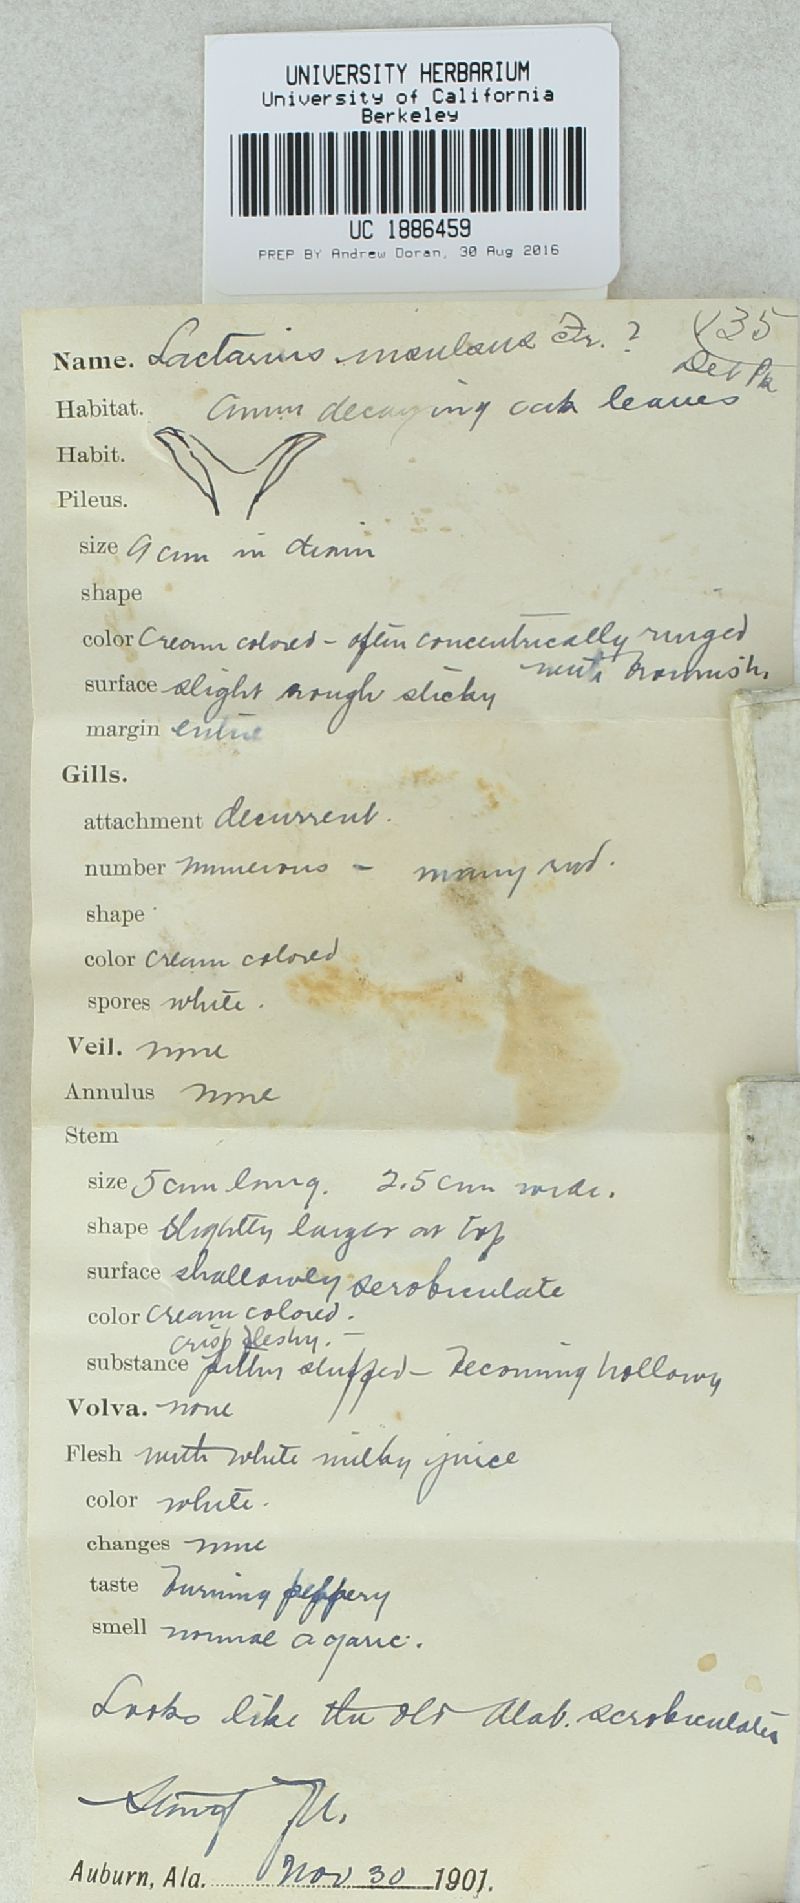 UNIVERSITY HERBARIUM
University of California
Berkeley
UC 1886459
PREP BY Andrew Doran, 30 Aug 2016
135
Name. Lactarius insulsus Fr. ?
Det Pk
Habitat. Amm decaying oak leaves
Habit.
Pileus.
size 9 cm in diam
shape
color Cream colored - often concentrically ringed
with brownish.
surface slight rough sticky
margin entire
Gills.
attachment decurrent.
number numerous - many rud.
shape
color cream colored
spores white.
Veil. none
Annulus none
Stem
size 5 cm long. 2.5 cm wide.
shape slightly larger at top
surface shallowly scrobiculate
color cream colored.
crisp fleshy. -
substance pithy stuffed - becoming hollowy
Volva. none
Flesh with white milky juice
color white.
changes none
taste burning peppery
smell normal agaric.
Looks like the old Alab. scrobiculatus
Auburn, Ala. Nov 30 1901.